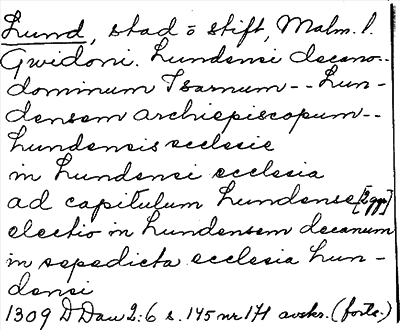 Lund, stad o stift, Malm. l.
Gwidoni. Lundensi decano--
dominum Isarnum -- Lun-
densem archiepiscopum --
Lundensis ecclesie
in Lundensi ecclesia
ad capitulum Lundense [2ggr]
electio in Lundensem decanum
in sepedicta ecclesia Lun-
densi
1309 DDan 2:6 s. 145 nr 171 avskr. (forts.)